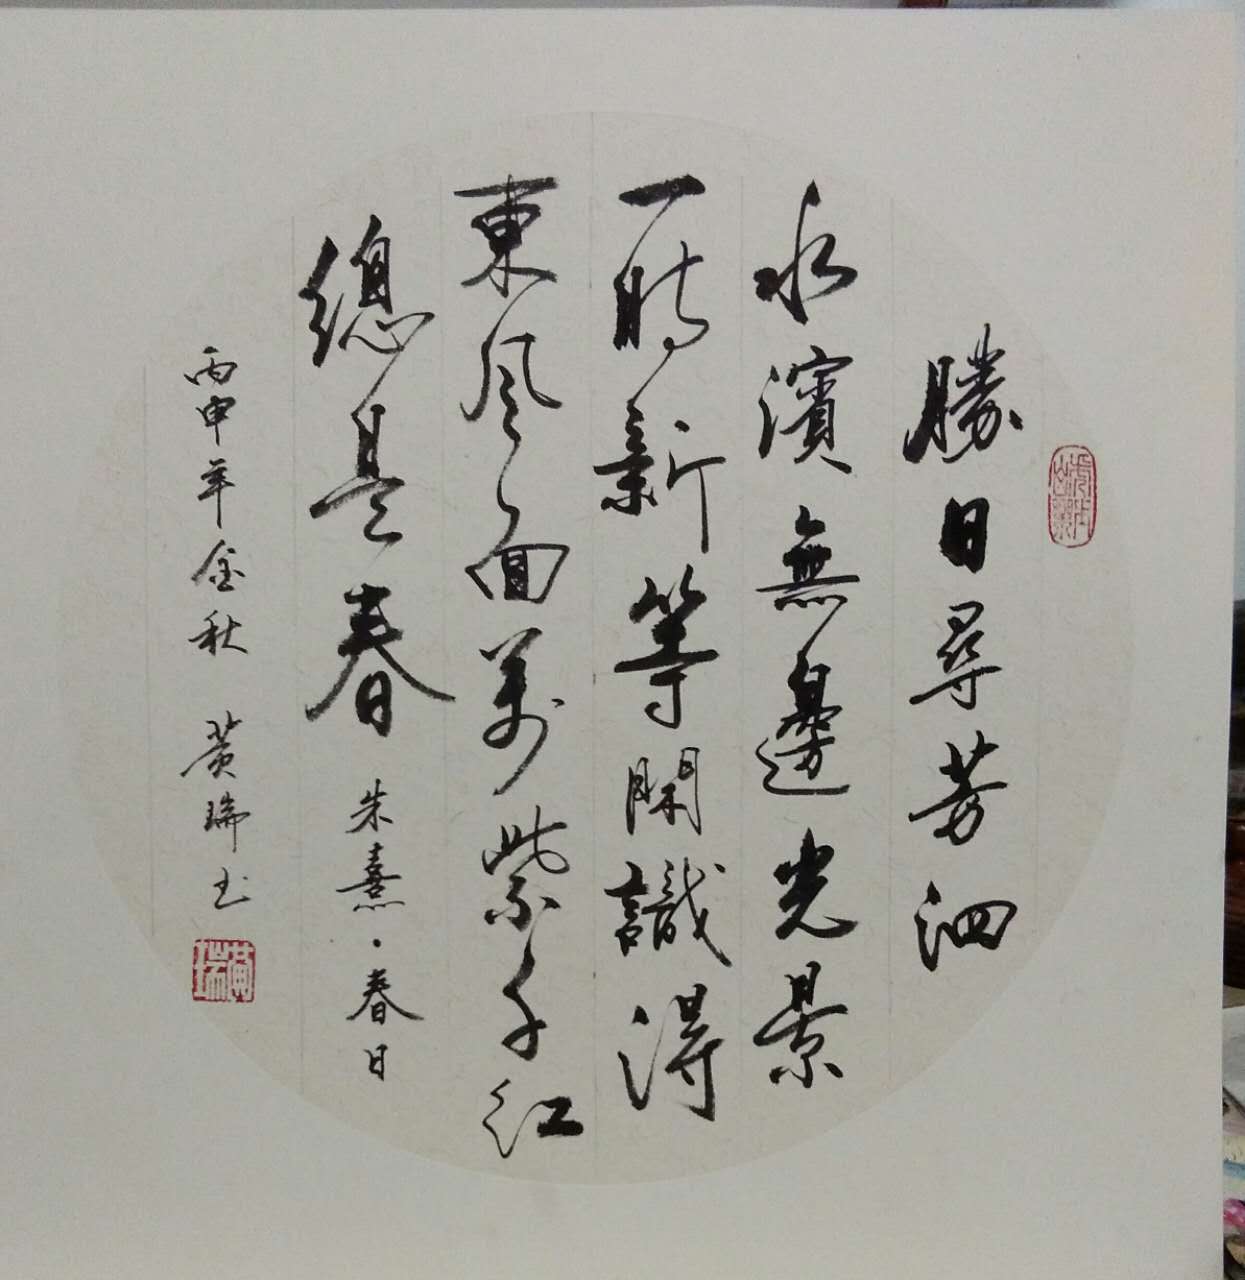 勝日尋芳泗
水濱無邊光景
一時新等閑識得
東風面萬紫千紅
總是春 朱熹·春日
丙申年金秋 黄瑞书
黄瑞